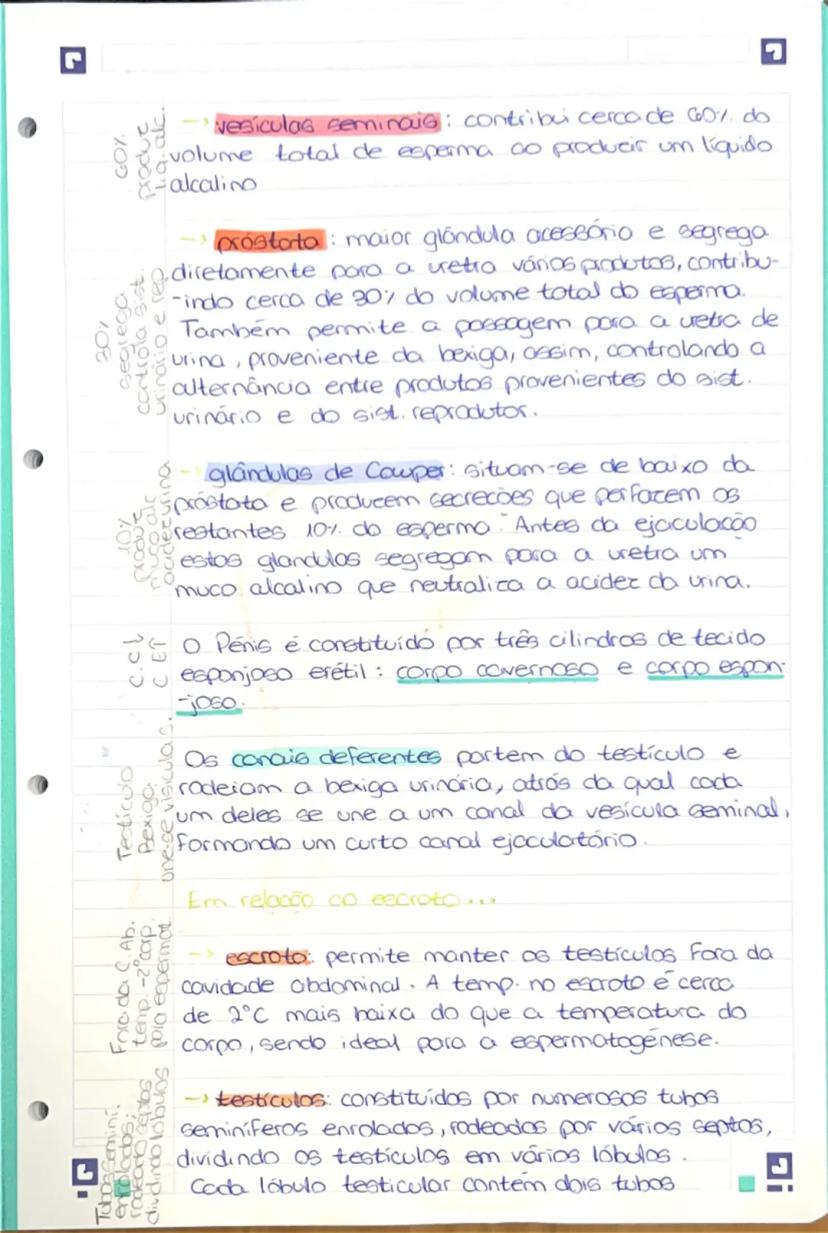 → vesículas seminais: contribui cerca de 60% do
volume total de esperma ao produzir um líquido
alcalino
→ próstata: maior glândula acessório e segrega
diretamente para a uretra vários produtos, contribu-
-indo cerca de 30% do volume total do esperma.
Também permite a passagem para a uretra de
urina, proveniente da bexiga, assim, controlando a
alternância entre produtos provenientes do sist.
urinário e do sist. reprodutor.
→ glândulas de Cowper: situam-se de baixo da
próstata e produzem secreções que perfazem os
restantes 10% do esperma. Antes da ejaculação
estas glandulas segregam para a uretra um
muco alcalino que neutraliza a acidez da urina.
O Pénis é constituído por três cilindros de tecido
esponjoso erétil: corpo cavernoso e corpo espon-
-joso.
Os canais deferentes partem do testículo e
rodeiam a bexiga urinária, atrás da qual cada
um deles se une a um canal da vesícula seminal,
formando um curto canal ejaculatório.
Em relação ao escroto...
→ escroto: permite manter os testículos fora da
cavidade abdominal. A temp. no escroto é cerca
de 2°C mais baixa do que a temperatura do
corpo, sendo ideal para a espermatogénese.
→ testículos: constituídos por numerosos tubos
seminíferos enrolados, rodeados por vários septos,
dividindo os testículos em vários lóbulos.
Cada lóbulo testicular contém dois tubos
60%
produz
liq. alc.
30%
segrega
controla sist.
urinário e rep.
10%
produz
muco alc
acidez urina
C.C
C E
Testículo
Bexiga
une-se vísculas.
Fora da C. Ab.
temp. -2° corp.
para espermat.
Tubos semini.
enrolados;
rodeano septos
dividindo lóbulos